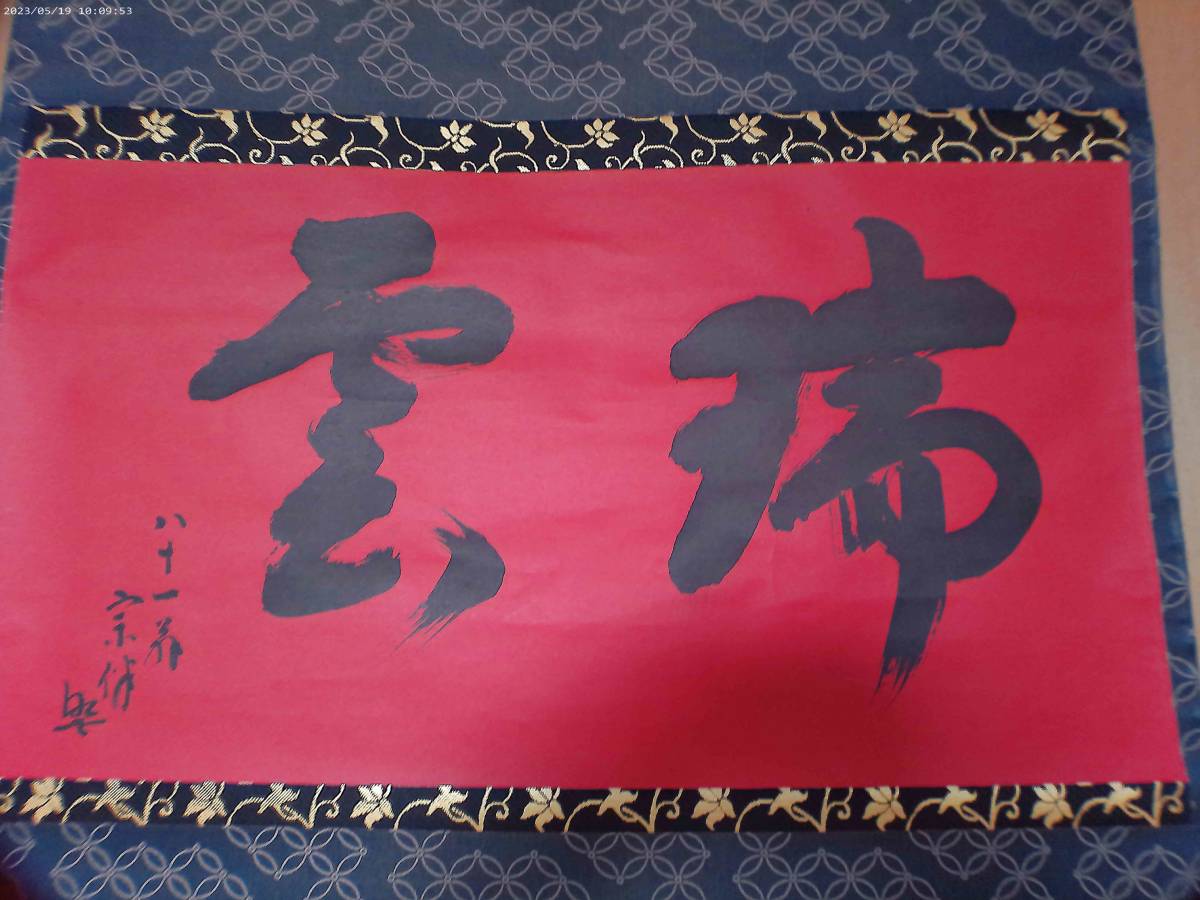 2023/05/19 10:09:53
瑞雲
八十一翁
宗